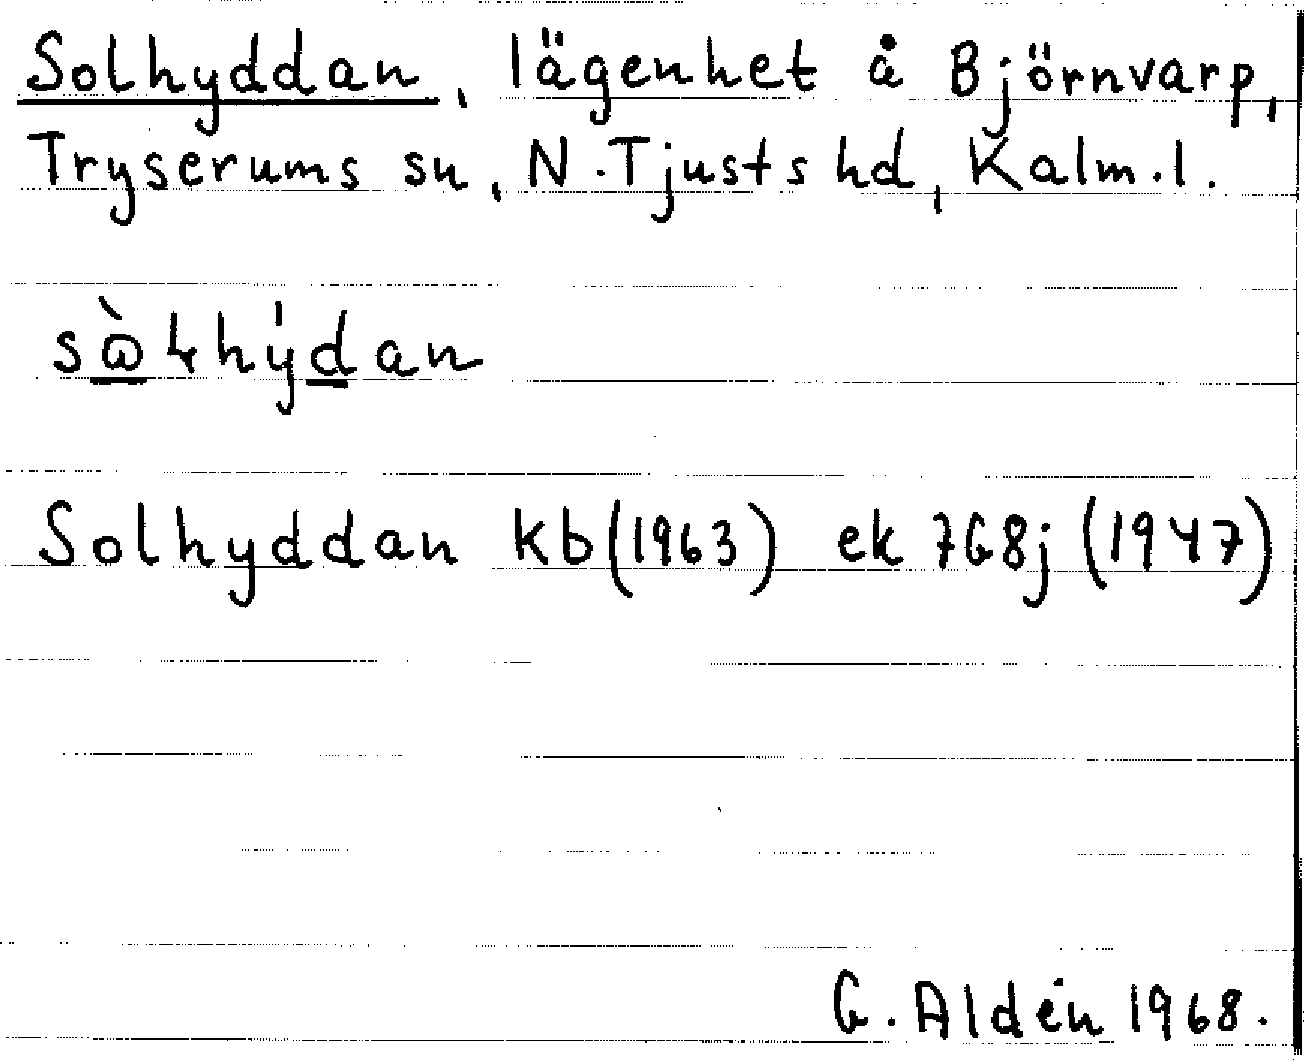 Solhyddan, lägenhet å Björnvarp,
Tryserums sn, N.Tjusts hd, Kalm.l.
Solhyddan kb(1963) ek 7G8j (1947)
G. Aldén 1968.